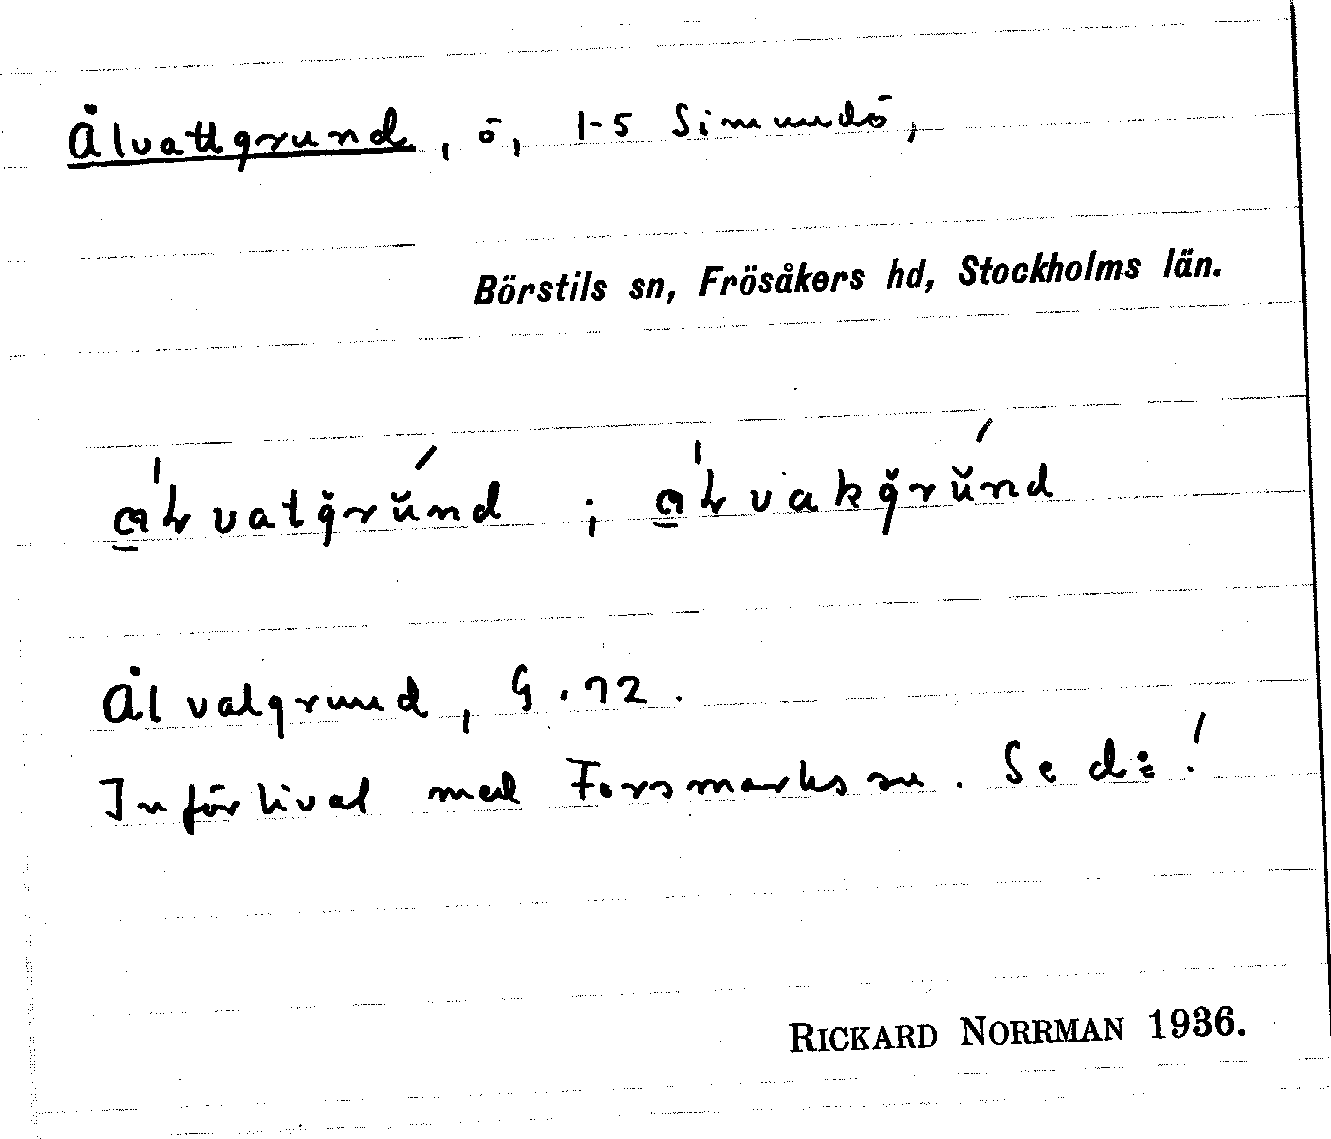 Ålvattgrund, ö, 1-5 Simundö,
Börstils sn, Frösåkers hd, Stockholms län.
Ålvatgrund, G. 72.
Införlivat med Forsmarks sn. Se d:o!
RICKARD NORRMAN 1936.